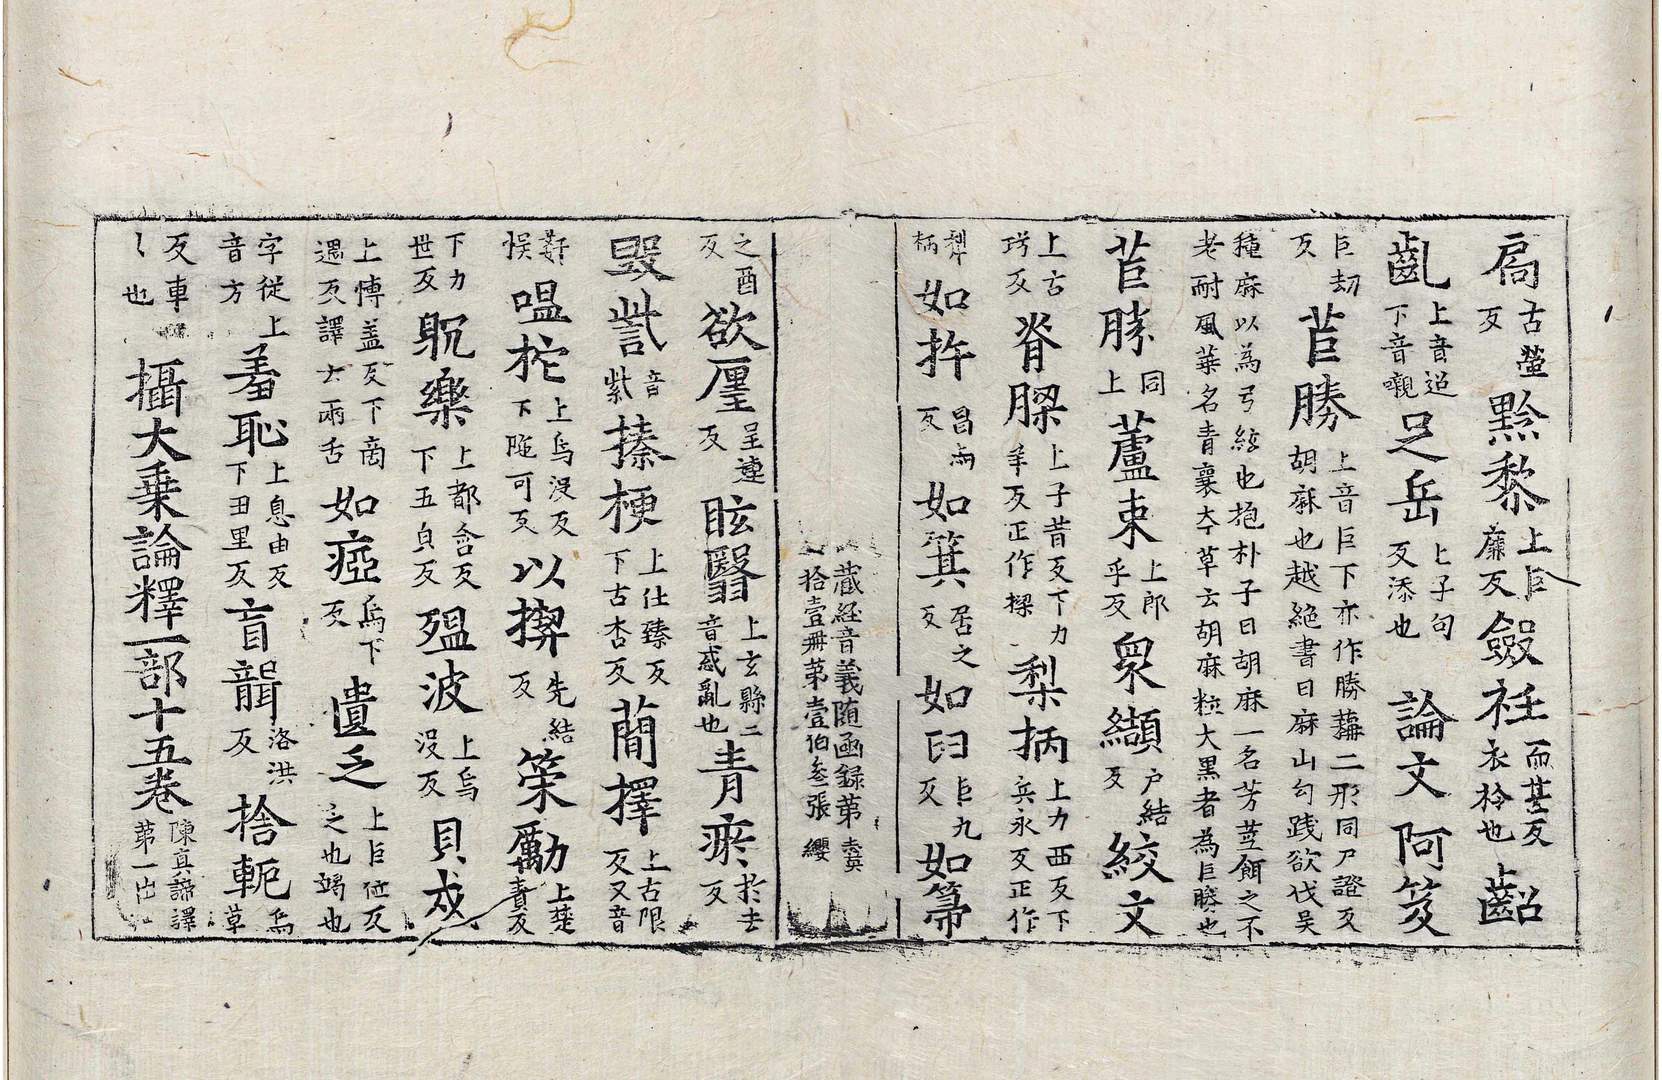 扄古螢反黔黎上巨廉反斂衽上而甚反衣衿也齠
齔上音迢下音嚫足岳上子句反添也論文阿笈
巨刧反苣勝上音巨下亦作勝蕂二形同尸證反胡麻也越絶書曰麻山勾踐欲伐吴
種麻以為弓絃也抱朴子曰胡麻一名方莖餌之不老耐風葉名青蘘本草云胡麻粒大黑者為巨勝也
苣勝同上蘆束上郎乎反眾纈户結反絞文
上古巧反脊膫上子昔反下力羊反正作樑梨抦上力西反下兵永反正作
犁柄如杵昌与反如箕居之反如臼巨九反如箒
藏経音義随函録苐
拾壹冊苐壹伯叁張 纓
之酉反欲㕓呈連反眩翳上玄縣二音惑亂也青瘀於去反
毁訾音紫搸梗上仕臻反下古杏反蕳擇上古限反又音
姧悮嗢柁上烏没反下陁可反以揳先結反策勵上楚責反
下力世反躭樂上都含反下五貞反殟波上烏没反貝戍
上博盖反下商遇反譯云兩舌如瘂烏下反遺乏上巨位反乏也竭也
字従上音方羞恥上息由反下丑里反盲聾洛洪反捨軛烏草
反車〻也攝大乗論釋一部十五卷陳真諦譯苐一